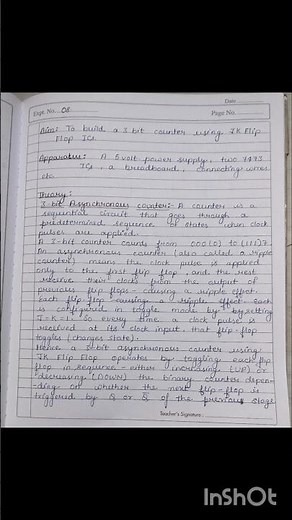 Date
Expt. No. 08
Page No.
Aim: To build a 3 bit counter using JK Flip
Flop ICs.
Apparatus: A 5 volt power supply, two 7473
ICs, a breadboard, connecting wires
etc.
Theory:
3 bit Asynchronous counter:- A counter is a
sequential circuit that goes through a
predetermined sequence of states when clock
pulses are applied.
A 3-bit counter counts from 000(0) to (111)7.
An asynchronous counter (also called a ripple
counter) means the clock pulse is applied
only to the first flip flop, and the rest
receive their clocks from the output of
previous flip flops - causing a ripple effect.
Each flip flop causing a ripple effect. Each
is configured in toggle mode by by setting
J=K=1. So every time a clock pulse is
received at its clock input, that flip-flop
toggles (changes state).
Hence a 3 bit asynchronous counter using
JK Flip Flop operates by toggling each flip
flop in sequence - either increasing (UP) or
decreasing (DOWN) the binary counter depen-
ding on whether the next flip-flop is
triggered by Q or Q̅ of the previous stage
Teacher's Signature
InShOt